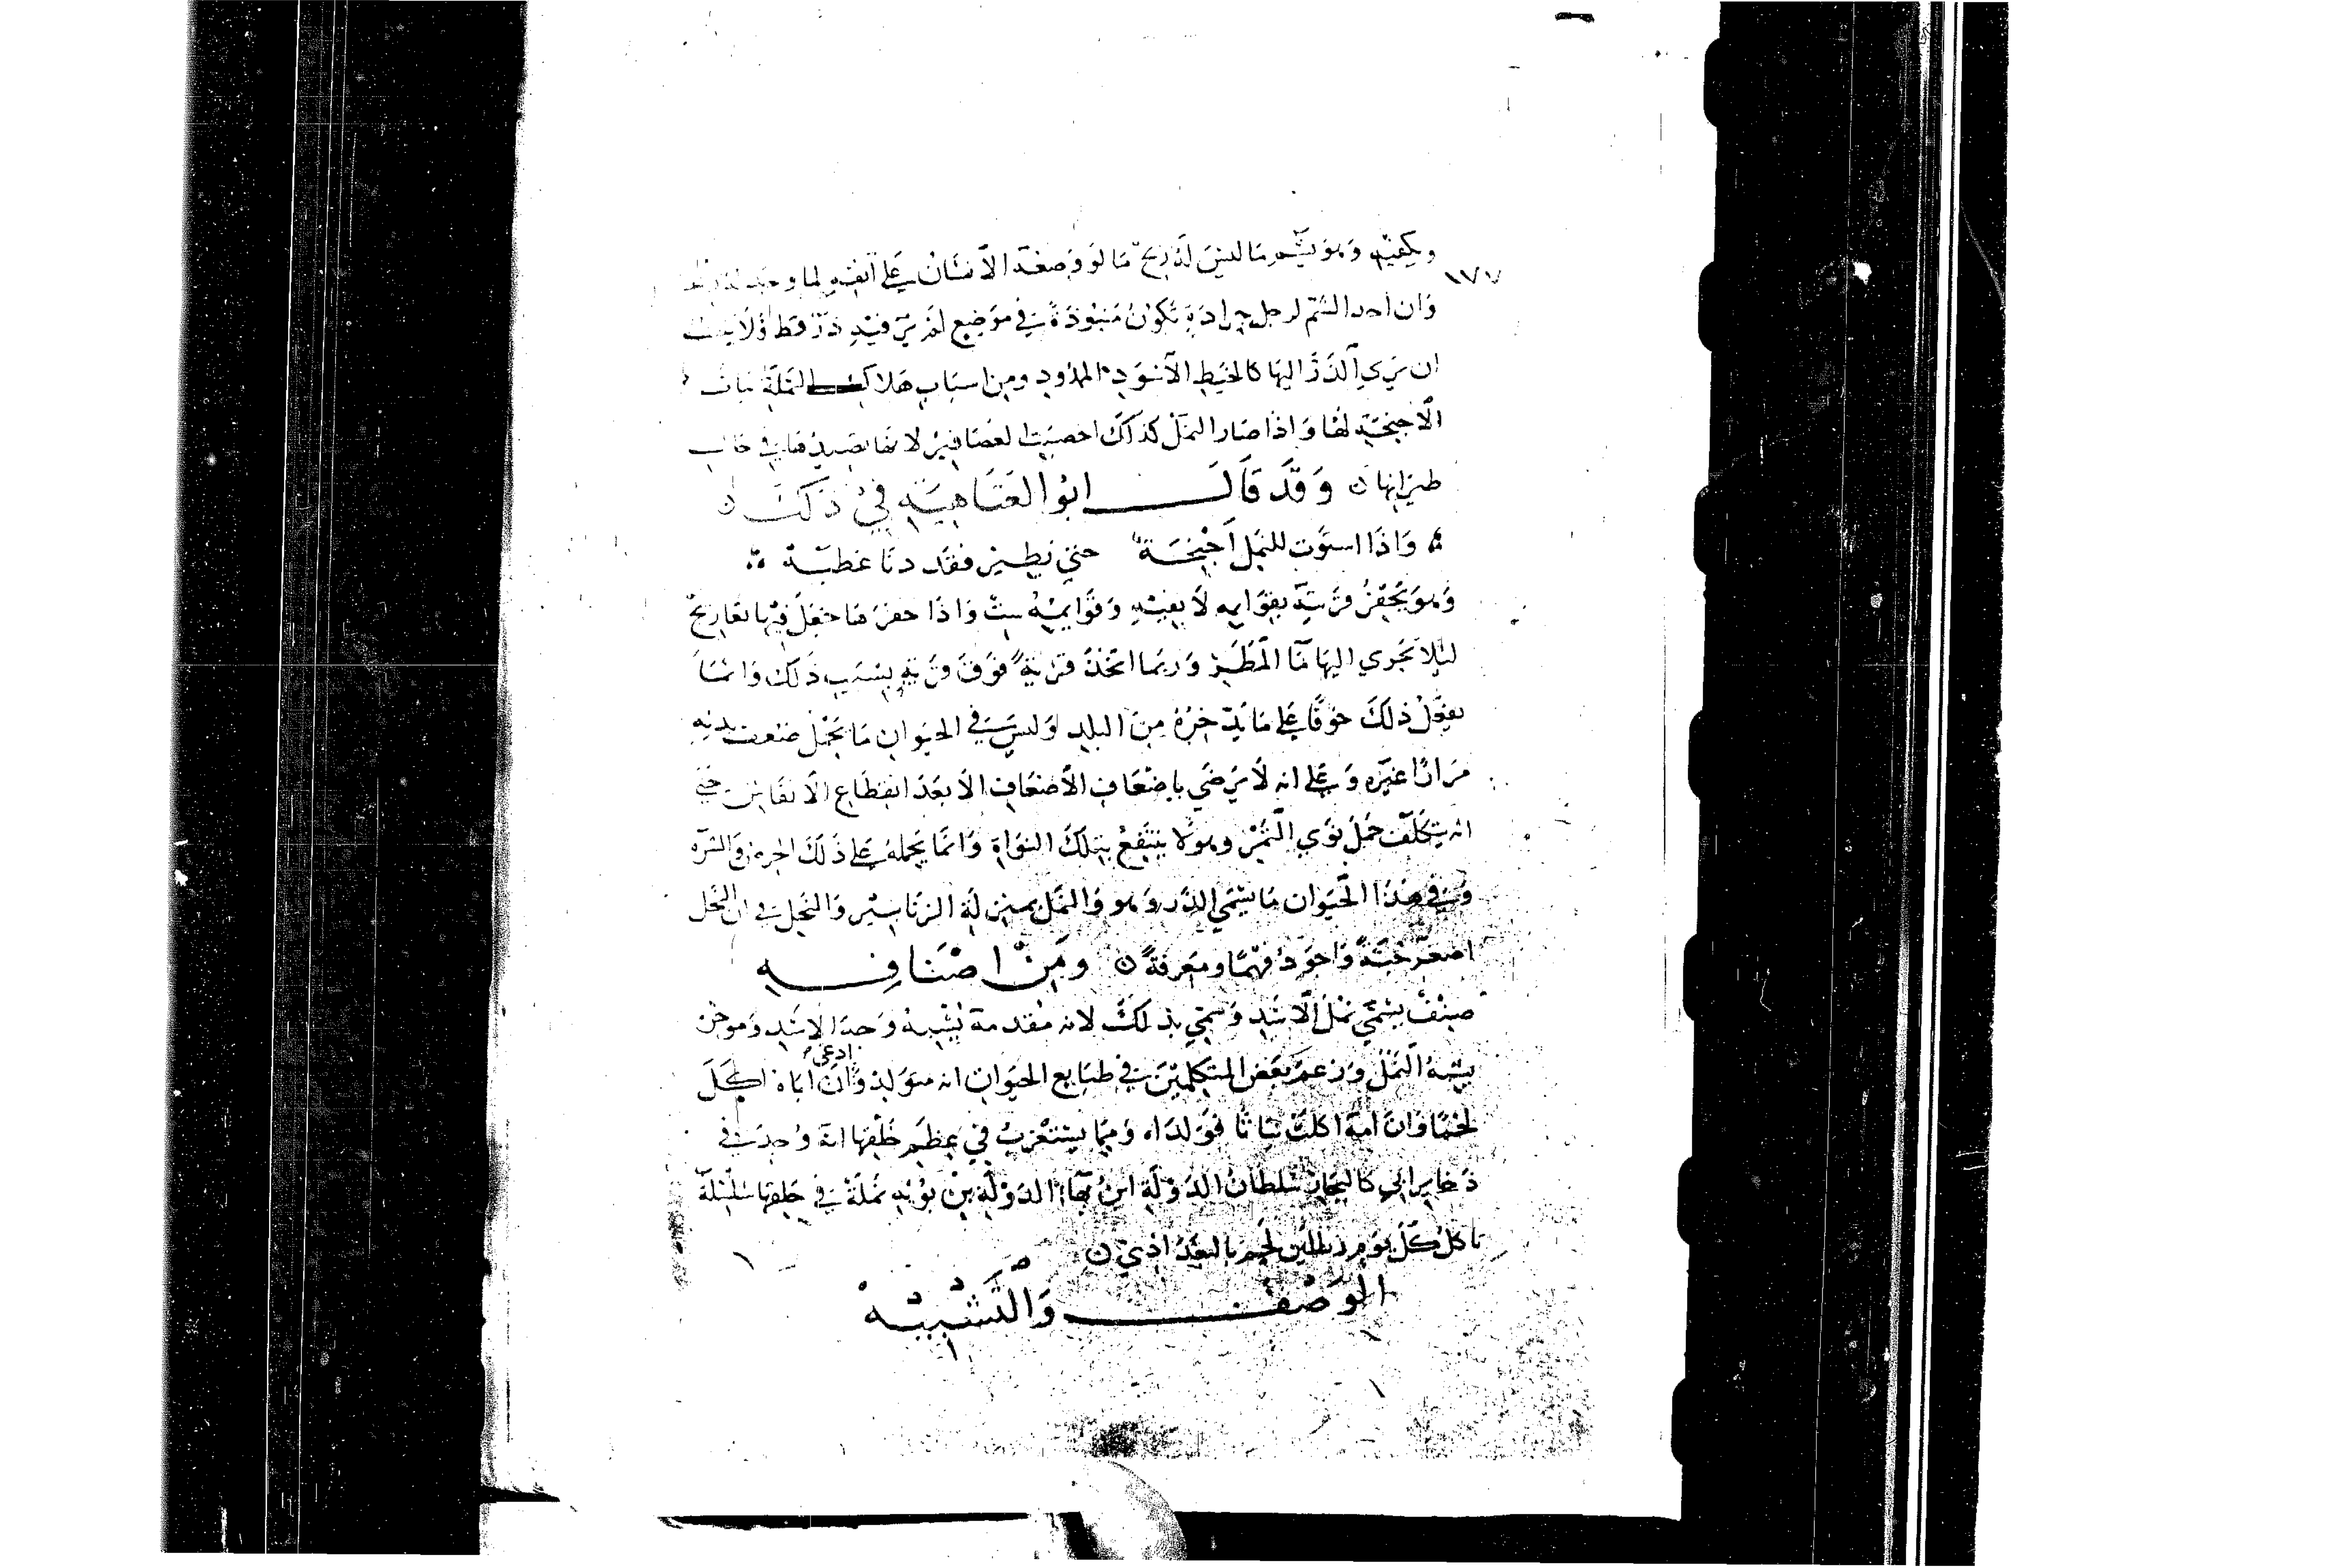 ويكفيه وهو يشم ما ليس له ريح مما لو وضعه الانسان على انفه لما وجد له
١٧٧
وان احد الشم لرجل جرادة تكون منبوذة في موضع لم ير فيه ذر قط ولا يلبث
ان يرى الذر اليها كالخيط الاسود الممدود ومن اسباب هلاك النملة نبات
الاجنحة لها واذا صار النمل كذلك اخصبت العصافير لانها تصيدها في حال
طيرانها ن وقد قال ابو العتاهية في ذلك ن
واذا استوت للنمل اجنحة حتى يطير فقد دنا عطبه
وهو يحفر قريته بقوايمه لا بفيه وقوايمه ست واذا حفرها جعل فيها تعاريج
ليلا يجري اليها ما المطر وربما اتخذ قرية فوق قرية بسبب ذلك وانما
يفعل ذلك خوفا على ما يدخره من البلل وليس في الحيوان ما يحمل ضعف بدنه
مرارا غيره وعلى انه لا يرضى باضعاف الاضعاف الا بعد انقطاع الانفاس حتى
انه يتكلف حمل نوى التمر وهو لا ينتفع بتلك النواة وانما يحمله على ذلك الحرص والشره
وفي هذا الحيوان ما يسمى الذر وهو والنمل بمنزلة الزنابير والنحل في ان النحل
اصغر جثة واجود فهما ومعرفة ن ومن اصنافه
صنف يسمى نمل الاسد وسمي بذلك لان مقدمه يشبه وجه الاسد وموخره
يشبه النمل وزعم بعض المتكلمين في طبايع الحيوان انه متولد وادعى ان اباه اكل
لحما وان امه اكلت نباتا فولداه ومما يستغرب في عظم خلقها انه وجد في
ذخاير ابي كاليجار سلطان الدولة ابن بهاء الدولة بن بويه نملة في حلقها سلسلة
تاكل كل يوم رطلين لحم بالبغدادي ن
الوصف والتشبيه